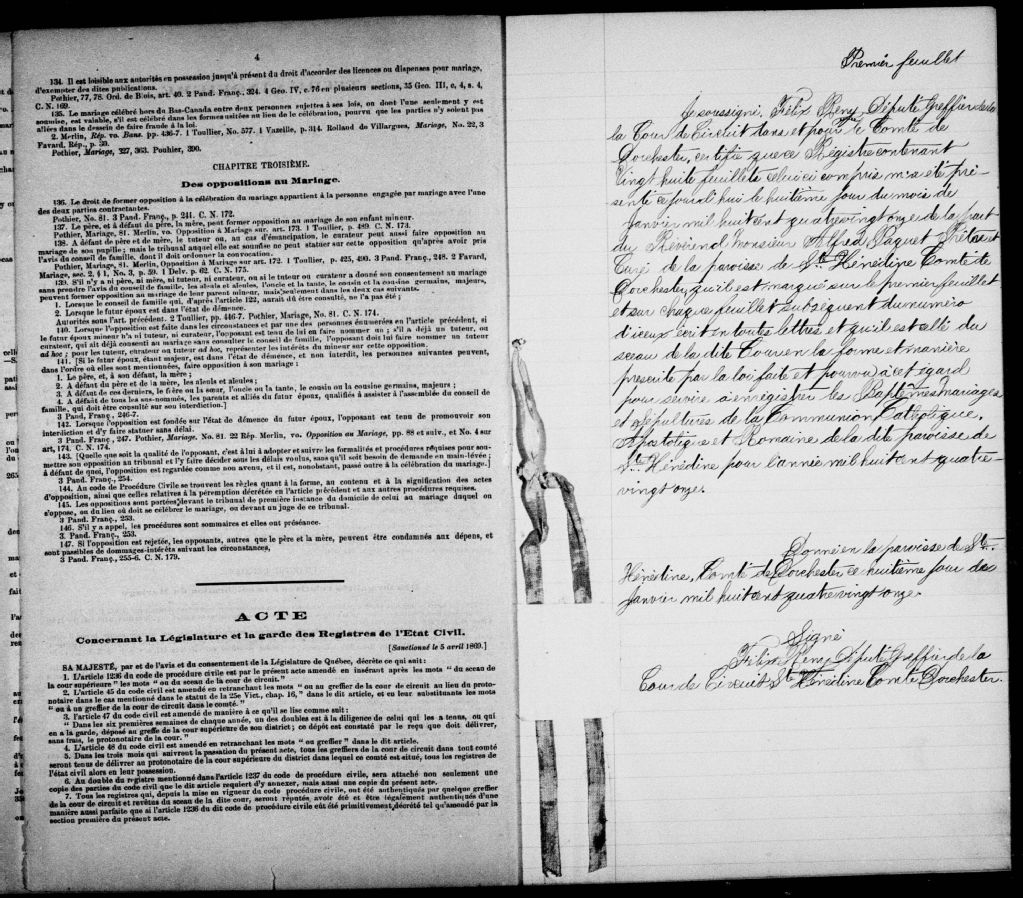 4
134. Il est loisible aux autorités en possession jusqu'à présent du droit d'accorder des licences ou dispenses pour mariage,
d'exempter des dites publications.
Pothier, 77, 78. Ord. de Blois, art. 40. 2 Pand. Franç. 324. 4 Geo. IV, c. 76 en plusieurs sections, 35 Geo. III, c. 4, s. 4,
C. N. 169.
135. Le mariage célébré hors du Bas-Canada entre deux personnes sujettes à ses lois, ou dont l'une seulement y est
soumise, est valable, s'il est célébré dans les formes usitées au lieu de la célébration, pourvu que les parties n'y soient pas
allées dans le dessein de faire fraude à la loi.
2 Merlin, Rép. vo. Bans. pp. 436-7. 1 Toullier, No. 577. 1 Vazeille, p. 314. Rolland de Villargues, Mariage, No. 22, 3
Favard, Rép., p. 30.
Pothier, Mariage, 327, 363. Pouhier, 390.
CHAPITRE TROISIÈME.
Des oppositions au Mariage.
136. Le droit de former opposition à la célébration du mariage appartient à la personne engagée par mariage avec l'une
des deux parties contractantes.
Pothier, No. 81. 3 Pand. Franç., p. 241. C. N. 172.
137. Le père, et à défaut du père, la mère, peut former opposition au mariage de son enfant mineur.
Pothier, Mariage, 81. Merlin, vo. Opposition à Mariage sur. art. 173. 1 Toullier, p. 489. C. N. 173.
138. A défaut de père et de mère, le tuteur ou, au cas d'émancipation, le curateur peut aussi faire opposition au
mariage de son pupille; mais le tribunal auquel elle est soumise ne peut statuer sur cette opposition qu'après avoir pris
l'avis du conseil de famille, dont il doit ordonner la convocation.
Pothier, Mariage, 81. Merlin, Opposition à Mariage sur art. 172. 1 Toullier, p. 425, 490. 3 Pand. Franç., 248. 2 Favard,
Mariage, sec. 2, § 1, No. 3, p. 59. 1 Delv. p. 62. C. N. 175.
139. S'il n'y a ni père, ni mère, ni tuteur, ni curateur, ou si le tuteur ou curateur a donné son consentement au mariage
sans prendre l'avis du conseil de famille, les aïeuls et aïeules, l'oncle et la tante, le cousin et la cousine germains, majeurs,
peuvent former opposition au mariage de leur parent mineur, mais seulement dans les deux cas suivants.
1. Lorsque le conseil de famille qui, d'après l'article 122, aurait dû être consulté, ne l'a pas été;
2. Lorsque le futur époux est dans l'état de démence.
Autorités sous l'art. précédent. 2 Toullier, pp. 446-7. Pothier, Mariage, No. 81. C. N. 174.
140. Lorsque l'opposition est faite dans les circonstances et par une des personnes énumérées en l'article précédent, si
le futur époux mineur n'a ni tuteur, ni curateur, l'opposant est tenu de lui en faire nommer un; s'il a déjà un tuteur, ou
curateur, qui ait déjà consenti au mariage sans consulter le conseil de famille, l'opposant doit lui faire nommer un tuteur
ad hoc; pour les tuteur, curateur ou tuteur ad hoc, représenter les intérêts du mineur sur cette opposition.
141. [Si le futur époux, étant majeur, est dans l'état de démence, et non interdit, les personnes suivantes peuvent,
dans l'ordre où elles sont mentionnées, faire opposition à son mariage:
1. Le père, et, à son défaut, la mère;
2. A défaut du père et de la mère, les aïeuls et aïeules;
3. A défaut de ces derniers, le frère ou la sœur, l'oncle ou la tante, le cousin ou la cousine germains, majeurs;
4. A défaut de tous les sus-nommés, les parents et alliés du futur époux, qualifiés à assister à l'assemblée du conseil de
famille, qui doit être consulté sur son interdiction.]
3 Pand. Franç., 246-7.
142. Lorsque l'opposition est fondée sur l'état de démence du futur époux, l'opposant est tenu de promouvoir son
interdiction et d'y faire statuer sans délai.
3 Pand. Franç., 247. Pothier, Mariage, No. 81. 22 Rép. Merlin, vo. Opposition au Mariage, pp. 88 et suiv., et No. 4 sur
art, 174. C. N. 174.
143. [Quelle que soit la qualité de l'opposant, c'est à lui à adopter et suivre les formalités et procédures réquises pour sou-
mettre son opposition au tribunal et l'y faire décider sous les délais voulus, sans qu'il soit besoin de demande en main-levée;
à défaut de quoi, l'opposition est regardée comme non avenue, et il est, nonobstant, passé outre à la célébration du mariage.]
3 Pand. Franç., 254.
144. Au code de Procédure Civile se trouvent les règles quant à la forme, au contenu et à la signification des actes
d'opposition, ainsi que celles relatives à la péremption décrétée en l'article précédent et aux autres procédures requises.
145. Les oppositions sont portées devant le tribunal de première instance du domicile de celui au mariage duquel on
s'oppose, ou du lieu où doit se célébrer le mariage, ou devant un juge de ce tribunal.
3 Pand. Franç., 253.
146. S'il y a appel, les procédures sont sommaires et elles ont préséance.
3. Pand. Franç., 253.
147. Si l'opposition est rejetée, les opposants, autres que le père et la mère, peuvent être condamnés aux dépens, et
sont passibles de dommages-intérêts suivant les circonstances,
3 Pand. Franç., 255-6. C. N. 179.
ACTE
Concernant la Législature et la garde des Registres de l'Etat Civil.
[Sanctionné le 5 avril 1869.]
SA MAJESTÉ, par et de l'avis et du consentement de la Législature de Québec, décrète ce qui suit:
1. L'article 1236 du code de procédure civile est par le présent acte amendé en insérant après les mots "du sceau de
la cour supérieure" les mots "ou du sceau de la cour de circuit."
2. L'article 45 du code civil est amendé en retranchant les mots "ou au greffier de la cour de circuit au lieu du proto-
notaire dans le cas mentionné dans le statut de la 25e Vict., chap. 16," dans le dit article, et en leur substituants les mots
"ou à un greffier de la cour de circuit dans le comté."
3. L'article 47 du code civil est amendé de manière à ce qu'il se lise comme suit:
"Dans les six premières semaines de chaque année, un des doubles est à la diligence de celui qui les a tenus, ou qui
en a la garde, déposé au greffe de la cour supérieure de son district; ce dépôt est constaté par le reçu que doit délivrer,
sans frais, le protonotaire de la cour."
4. L'article 48 du code civil est amendé en retranchant les mots "ou greffier" dans le dit article.
5. Dans les trois mois qui suivront la passation du présent acte, tous les greffiers de la cour de circuit dans tout comté
seront tenus de délivrer au protonotaire de la cour supérieure du district dans lequel ce comté est situé, tous les registres de
l'état civil alors en leur possession.
6. Au double du registre mentionné dans l'article 1237 du code de procédure civile, sera attaché non seulement une
copie des parties du code civil que le dit article requiert d'y annexer, mais aussi une copie du présent acte.
7. Tous les registres qui, depuis la mise en vigueur du code procédure civile, ont été authentiqués par quelque greffier
de la cour de circuit et revêtus du sceau de la dite cour, seront réputés avoir été et être légalement authentiqués d'une
manière aussi parfaite que si l'article 1236 du dit code de procédure civile eût été primitivement décrété tel qu'amendé par la
section première du présent acte.
Premier feuillet
Je soussigné, Félix Rény Député Greffier de
la Cour de Circuit dans et pour le Comté de
Dorchester, certifie que ce Régistre contenant
Vingt huite feuillets celui ci compris m'a été pré-
senté ce jourd'hui le huitième jour du mois de
Janvier mil huit cent quatre vingt onze de la part
du Révérend Monsieur Alfred Paquet Prêtre et
Curé de la paroisse de Ste Hénédine Comté de
Dorchester, qu'il est marqué sur le premier feuillet
et sur chaque feuillet subséquent du numéro
d'iceux écrit en toutes lettres et qu'il est scellé du
sceau de la dite Cour en la forme et manière
prescrite par la loi faite et pourvu à cet egard
pour servire à enregistrer les Baptêmes Mariages
et Sépultures de la Communion Catholique,
Apostolique et Romaine de la dite paroisse de
Ste Hénédine pour l'année mil huit cent quatre-
vingt onze.
Donné en la paroisse de Ste
Hénédine, Comté de Dorchester ce huitième jour de
Janvier mil huit cent quatre vingt onze.
Signé
Félix Rény Député Greffier de la
Cour de Circuit Ste Hénédine Comté Dorchester.